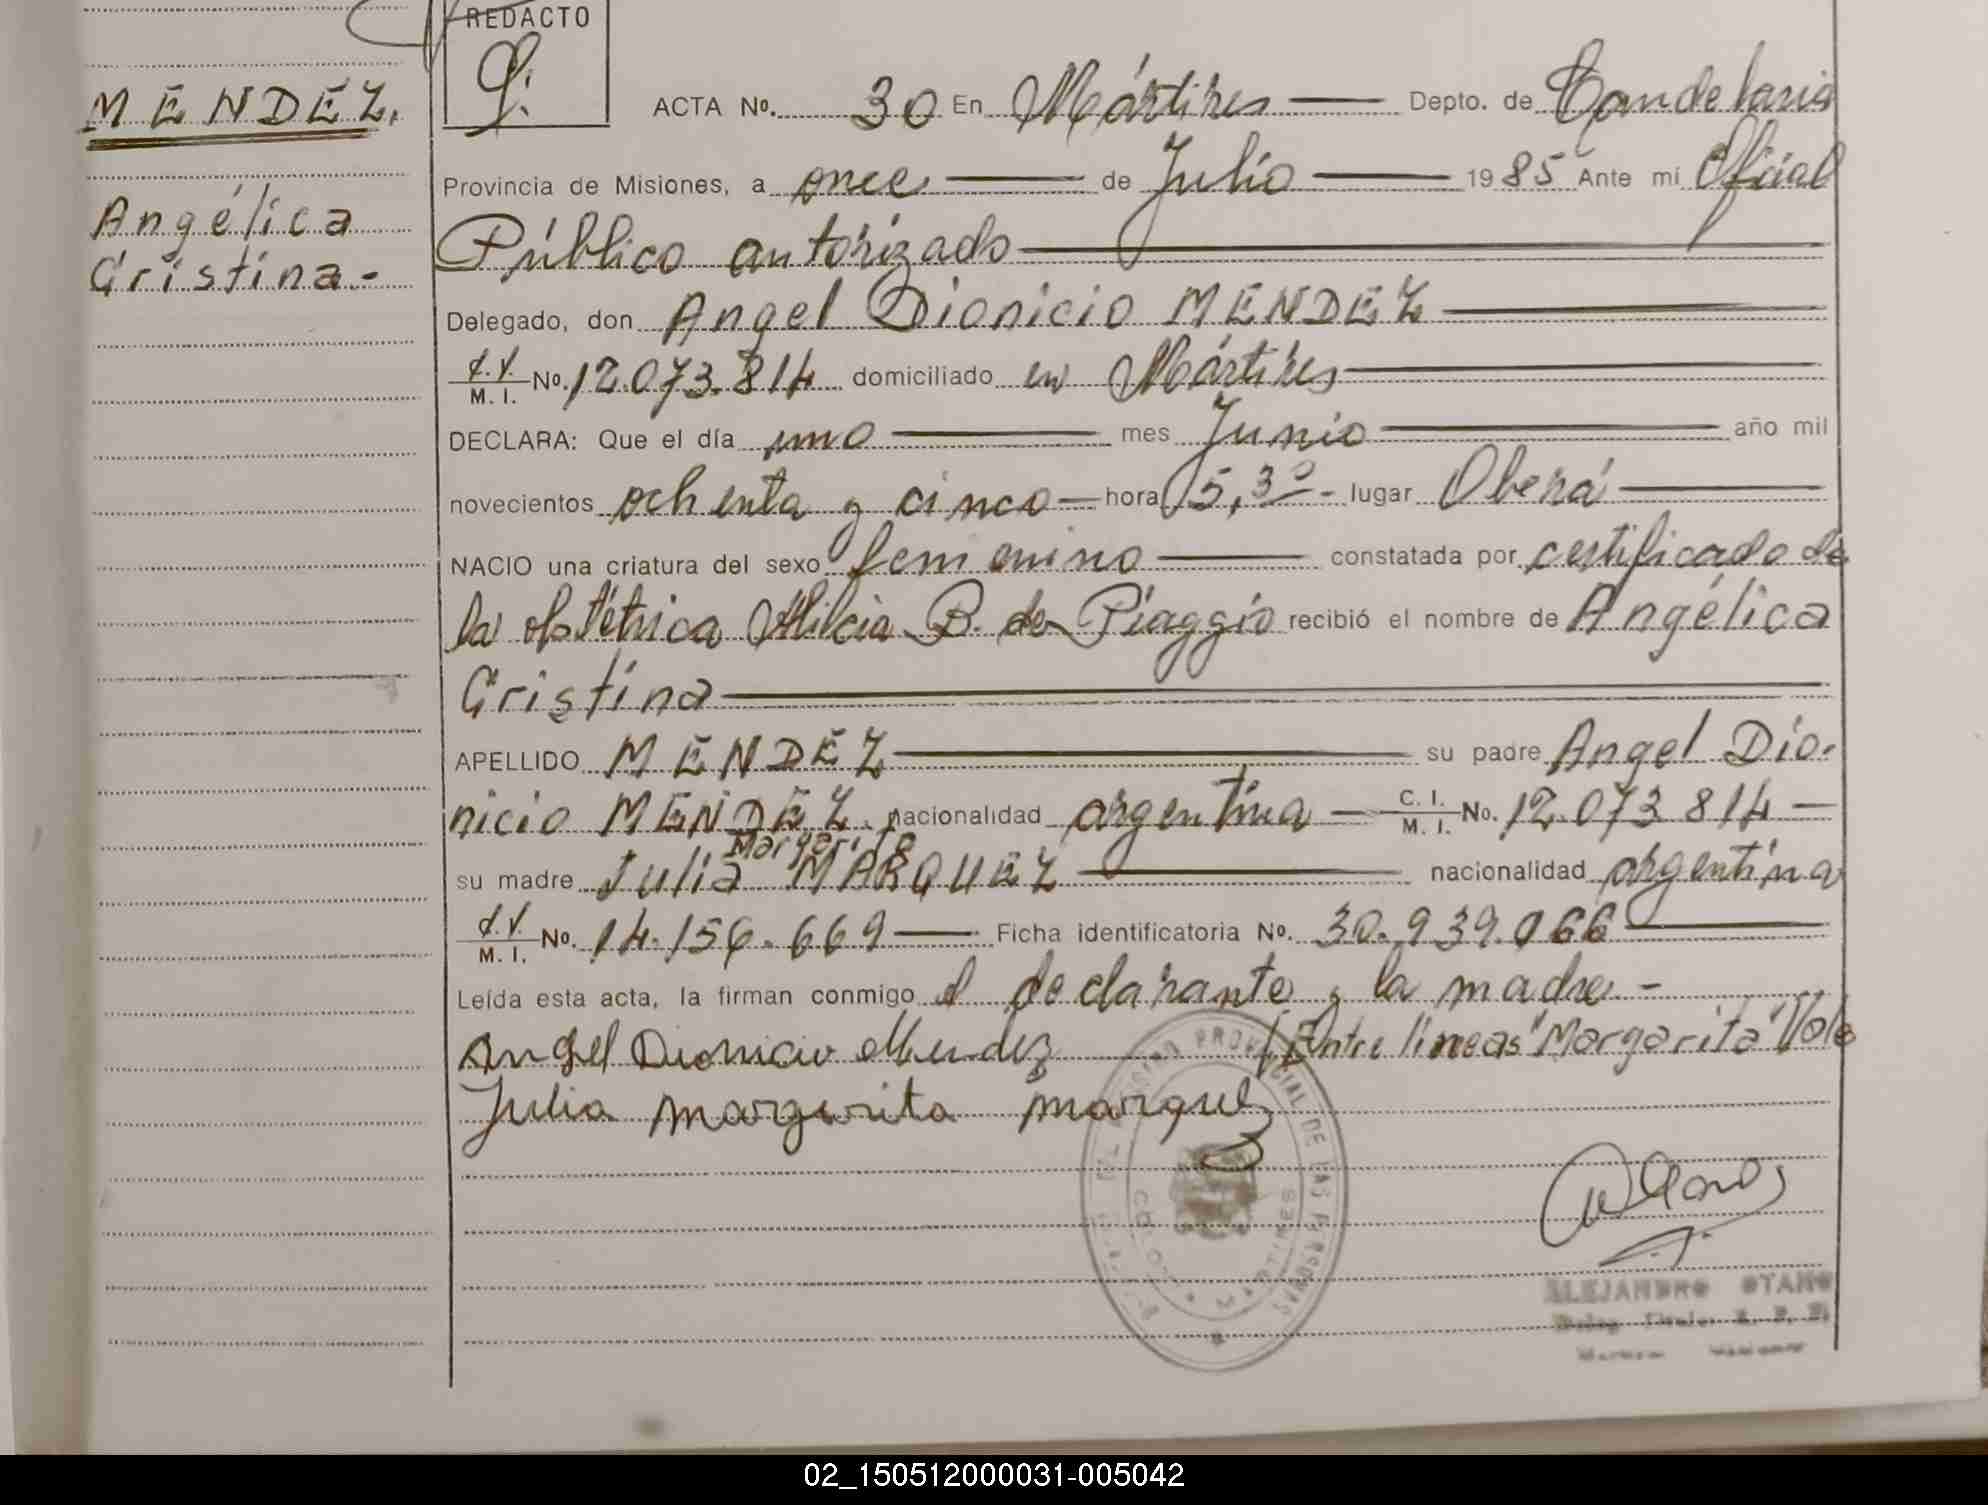 REDACTO
MENDEZ.
Angélica
Cristina.-
ACTA No. 30 En Mártires — Depto. de Candelaria
Provincia de Misiones, a once — de Julio — 1985 Ante mi Oficial
Público autorizado —
Delegado, don Angel Dionicio MENDEZ —
M. I. No. 12.073.814 domiciliado en Mártires —
DECLARA: Que el día uno — mes Junio — año mil
novecientos ochenta y cinco — hora 5,30 - lugar Oberá —
NACIO una criatura del sexo femenino — constatada por certificado de
la obstétrica Milcia B. de Piaggio recibió el nombre de Angélica
Cristina —
APELLIDO MENDEZ — su padre Angel Dio-
nicio MENDEZ. nacionalidad argentina — C. I. M. I. No. 12.073.814 —
Margarita
su madre Julia MARQUEZ — nacionalidad argentina
M. I. No. 14.156.669 — Ficha identificatoria No. 30.939.066 —
Leída esta acta, la firman conmigo el declarante y la madre.-
Angel Dionicio Mendez Entre líneas "Margarita" Vale
Julia margarita marquez
PROVINCIAL DE LAS PERSONAS
COLONIA MARTIRES
ALEJANDRO OTAÑO
02_150512000031-005042